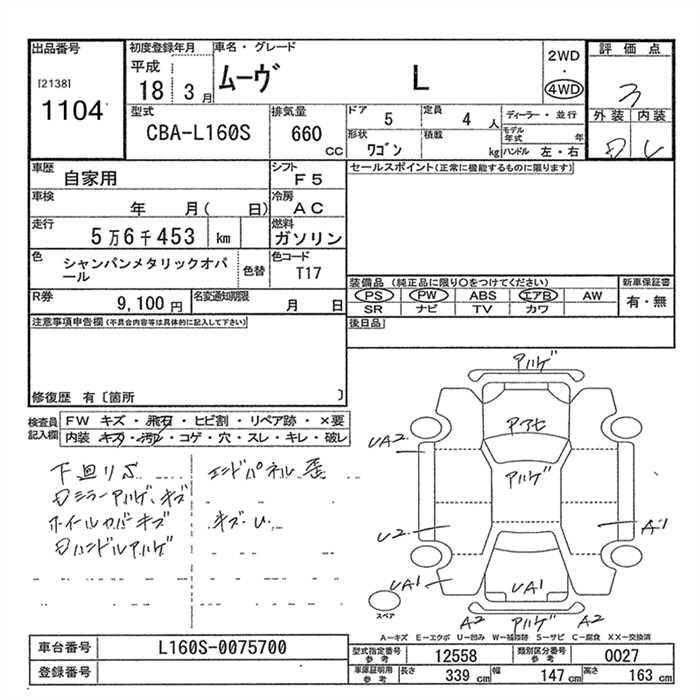 出品番号
[2138]
1104
初度登録年月
平成
18 3月
車名・グレード
ムーヴ L
2WD
・
4WD
評価点
3
外装 内装
型式
CBA-L160S
排気量
660
CC
ドア
5
定員
4 人
形状
ワゴン
積載
kg
ディーラー・並行
モデル年式 年
ハンドル 左・右
車歴
自家用
シフト
F5
車検
年 月( 日)
冷房
AC
走行
5万6千453 km
燃料
ガソリン
色
シャンパンメタリックオパ
ール
色替
色コード
T17
R券
9,100円
名変通知期限
月 日
セールスポイント(正常に機能するものに限ります)
装備品 (純正品に限り○をつけてください)
PS PW ABS エアB AW
SR ナビ TV カワ
新車保証書
有・無
後日品
注意事項申告欄(不具合内容等は具体的に記入して下さい)
修復歴 有〔箇所 〕
検査員
記入欄
FW キズ・飛石・ヒビ割・リペア跡・×要
内装 キズ・汚レ・コゲ・穴・スレ・キレ・破レ
下廻りS
ミラーアハゲ、キズ
ホイールカバーキズ
ハンドルアハゲ
エンドパネル歪
キズ・U
アハゲ
アハゲ
UA2
U2
UA1
A1
UA1
A2
アハゲ
A2
スペア
A-キズ E-エクボ U-凹み W-補修跡 S-サビ C-腐食 XX-交換済
車台番号
L160S-0075700
登録番号
型式指定番号
参考
12558
類別区分番号
参考
0027
車庫証明用
参考
長さ
339 cm
幅
147 cm
高さ
163 cm